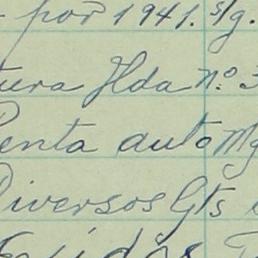 - por 1941. s/g.
tura Hda nº 3
Renta auto Mg
Diversos Gts